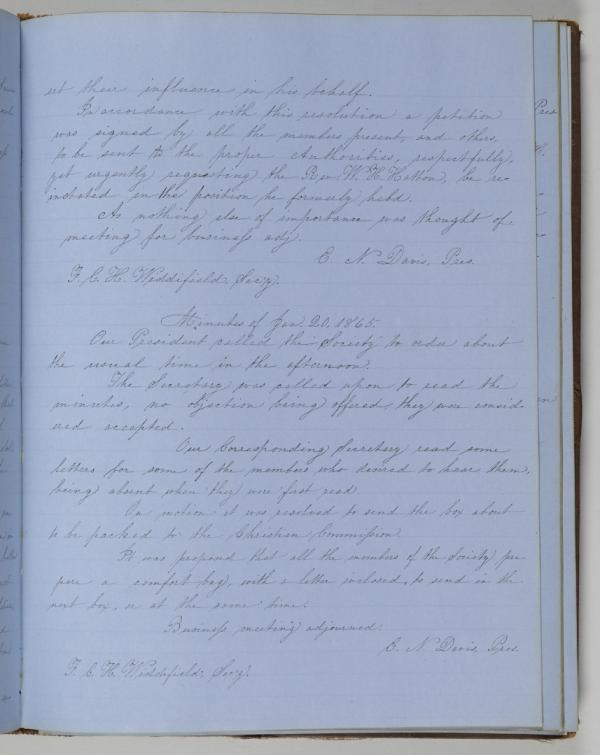 ert their influence in his behalf.
In accordance with this resolution a petition
was signed by all the members present, and others,
to be sent to the proper Authorities, respectfully,
yet urgently requesting the Rev. W. H. Hatton, be re
instated in the position he formerly held.
As nothing else of importance was thought of
meeting for business adj.
E. N. Davis, Pres.
F. C. H. Weddifield, Sec'y.
Minutes of Jan. 20, 1865.
Our President called the Society to order about
the usual time in the afternoon.
The Secretary was called upon to read the
minutes, no objection being offered they were consid
ered accepted.
Our Corresponding Secretary read some
letters for some of the members who desired to hear them,
being absent when they were first read.
On motion it was resolved to send the box about
to be packed to the Christian Commission.
It was proposed that all the members of the Society pre
pare a comfort bag, with a letter inclosed, to send in the
next box, or at the same time.
Business meeting adjourned.
E. N. Davis, Pres.
F. C. H. Weddifield, Sec'y.
Pres